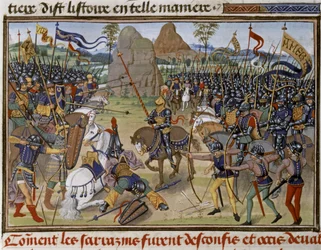 tierz dist listoire en telle maniere
Com̃ent les sarrazins furent desconfis et